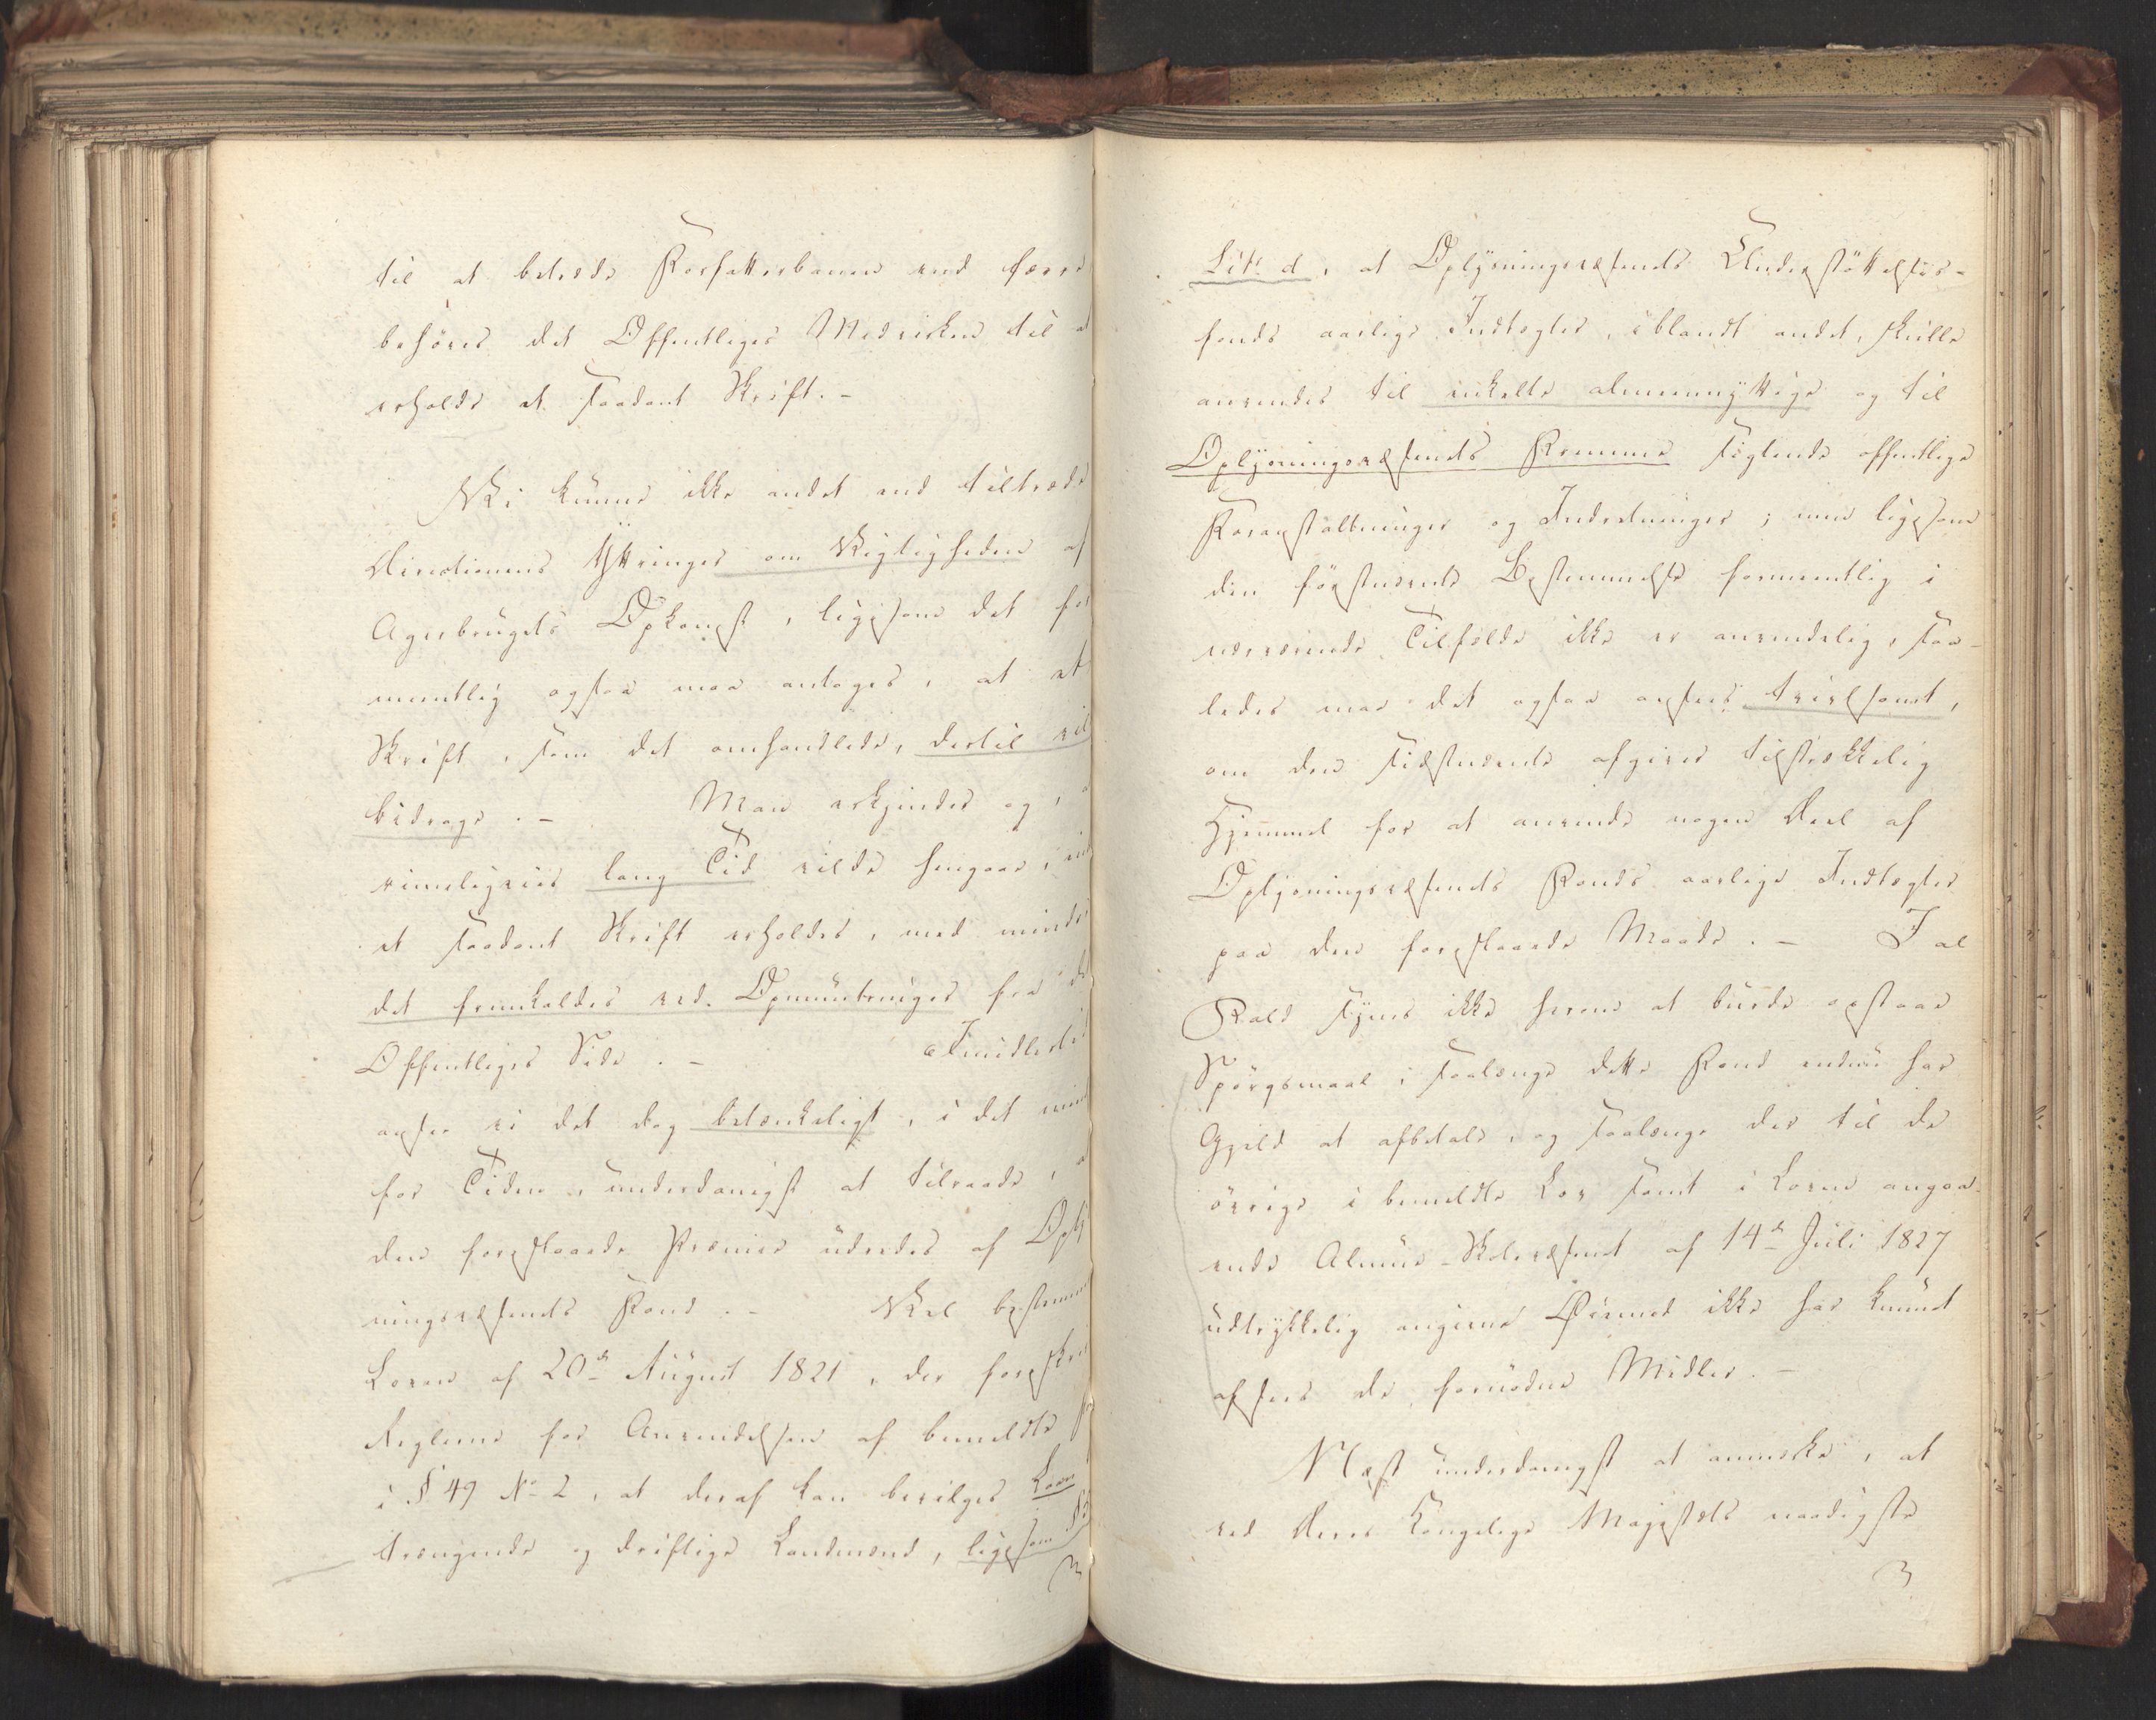 til at betræde Forfatterbanen end færre
behöves det Offentliges Medvirken til at
erholde et saadant Skrift. -
Vi kunne ikke andet end tiltræde
Directionens Yttringer om Vigtigheden af
Agerbrugets Opkomst, ligesom det for
meentlig ogsaa maa antages, at et
Skrift, som det omhandlede, dertil vil
bidrage. - Man erkjender og,
rimeligviis lang Tid vilde hengaae, inden
et saadant Skrift erholdes, med mindre
det fremkaldes ved Opmuntringer fra det
Offentliges Side. - Imidlertid
ansee vi det dog betænkeligt, i det mindste
for Tiden, underdanigst at tilraade, at
den foreslaaede Præmie udredes af Oplys
ningsvæsenets Fond. - Vel bestemmer
Loven af 20de August 1821, der foreskriver
Reglerne for Anvendelsen af bemeldte
i § 49 No 2, at deraf kan bevilges Laan
trængende og driftige Landmænd, ligesom §
Litr. d, at Oplysningsvæsenets Understöttelses-
fonds aarlige Indtægter, iblandt andet, skulle
anvendes til enkelte almeennyttige og til
Oplysningsvæsenets Fremme sigtende offentlige
Foranstaltninger og Indretninger; men ligesom
den förstnævnte Bestemmelse formeentlig i
nærværende Tilfælde ikke er anvendelig, saa-
ledes maa det ogsaa ansees tvivlsomt,
om den sidstnævnte afgiver tilstrækkelig
Hjemmel for at anvende nogen Deel af
Oplysningsvæsenets Fonds aarlige Indtægter
paa den foreslaaede Maade. - I al
Fald synes ikke herom at burde opstaae
Spörgsmaal, saalænge dette Fond endnu har
Gjeld at afbetale, og saalænge der til de
övrige i bemeldte Lov samt i Loven angaa-
ende Almue-Skolevæsenet af 14de Juli 1827
udtrykkelig angivne Öiemed ikke har kunnet
afsees de fornödne Midler. -
Næst underdanigst at anmærke, at
ved Deres Kongelige Majestæts naadigste